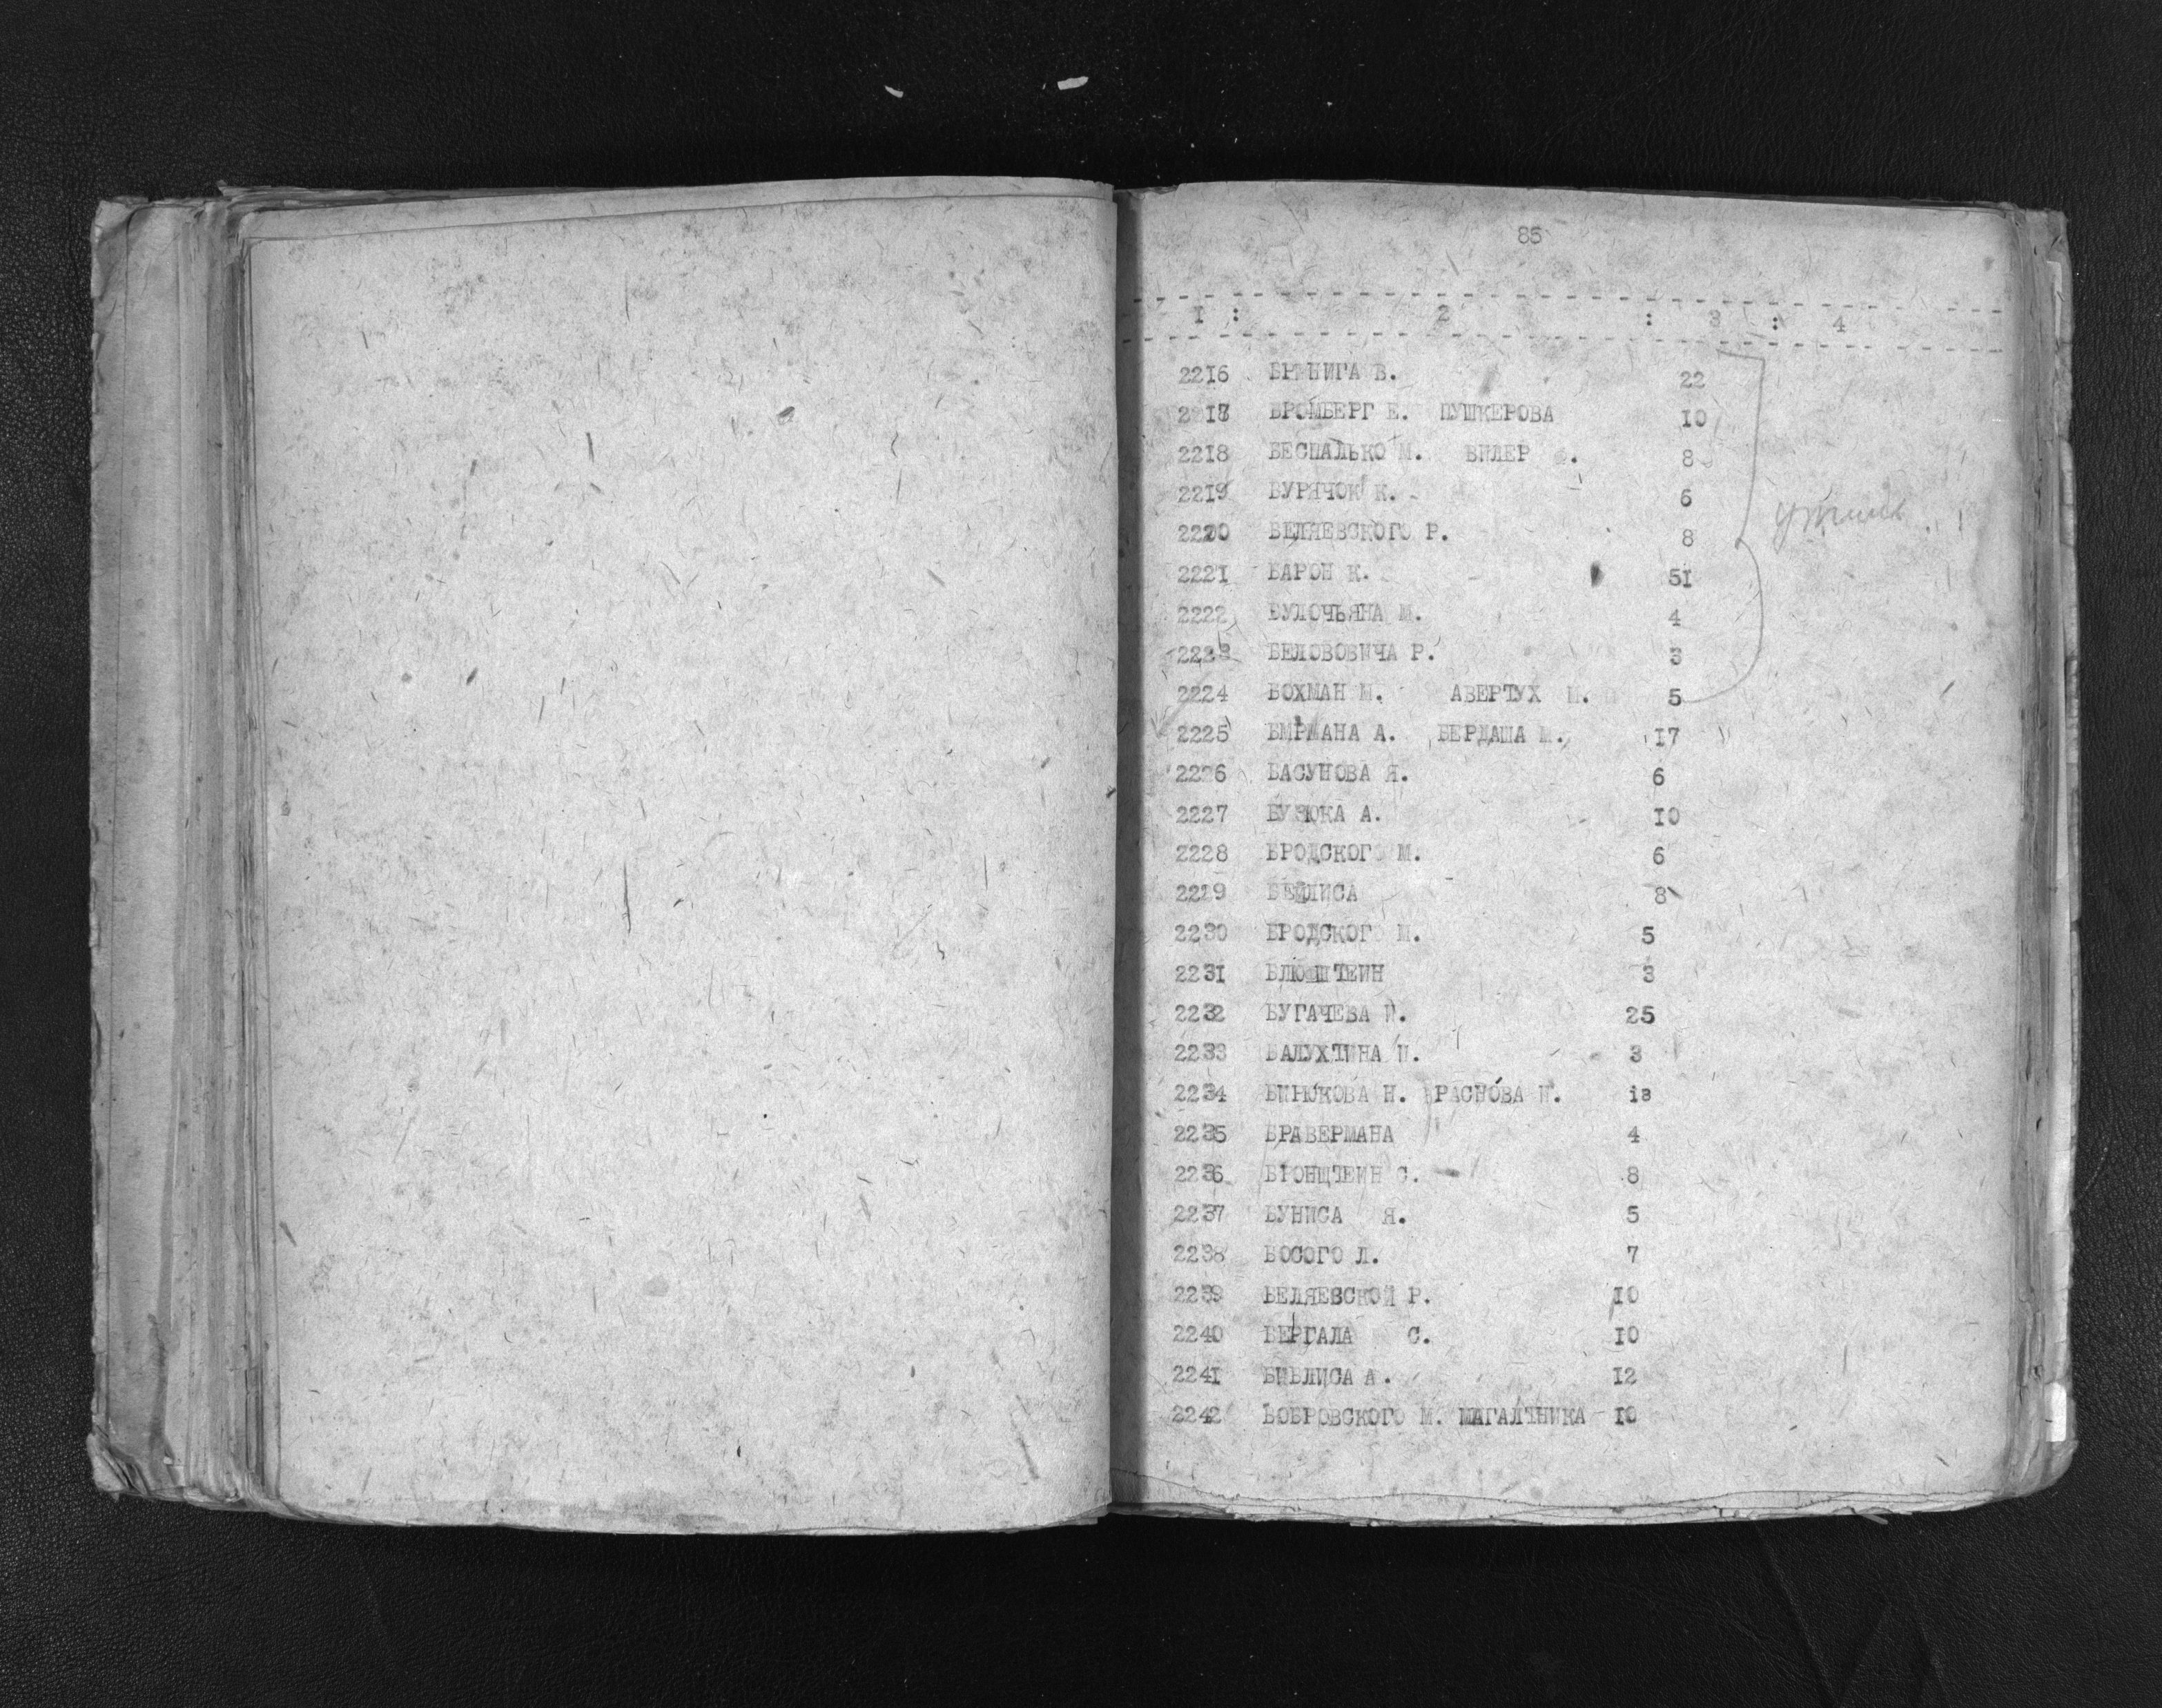 85
I : 2 : 3 : 4
2216 БРЕНИГА В. 22
2217 БРОМБЕРГ Е. ПУШКЕРОВА 10
2218 БЕСПАЛЬКО М. ВИЛЕР 8
2219 БУРЯЧОК К. 6
2220 БЕЛЯЕВСКОГО Р. 8
2221 БАРОН К. 5I
2222 БУЛОЧЬЯНА М. 4
2223 БЕЛОВОВИЧА Р. 3
2224 БОХМАН М. АВЕРТУХ 5
2225 БИРМАНА А. БЕРДАША I7
2226 БАСУНОВА Я. 6
2227 БУЗЮКА А. I0
2228 БРОДСКОГО М. 6
2229 БЕЙЛИСА 8
2230 БРОДСКОГО Ш. 5
223I БЛЮШТЕИН 3
2232 БУГАЧЕВА И. 25
2233 БАЛУХТИНА И. 3
2234 БИРЮКОВА Н. РАСНОВА И. i8
2235 БРАВЕРМАНА 4
2236 БРОНШТЕИН С. 8
2237 БУНИСА Я. 5
2238 БОСОГО Л. 7
2239 БЕЛЯЕВСКОЙ Р. I0
2240 БЕРГАЛА С. I0
224I БИБЛИСА А. I2
2242 БОБРОВСКОГО М. МАГАЛТНИКА I0